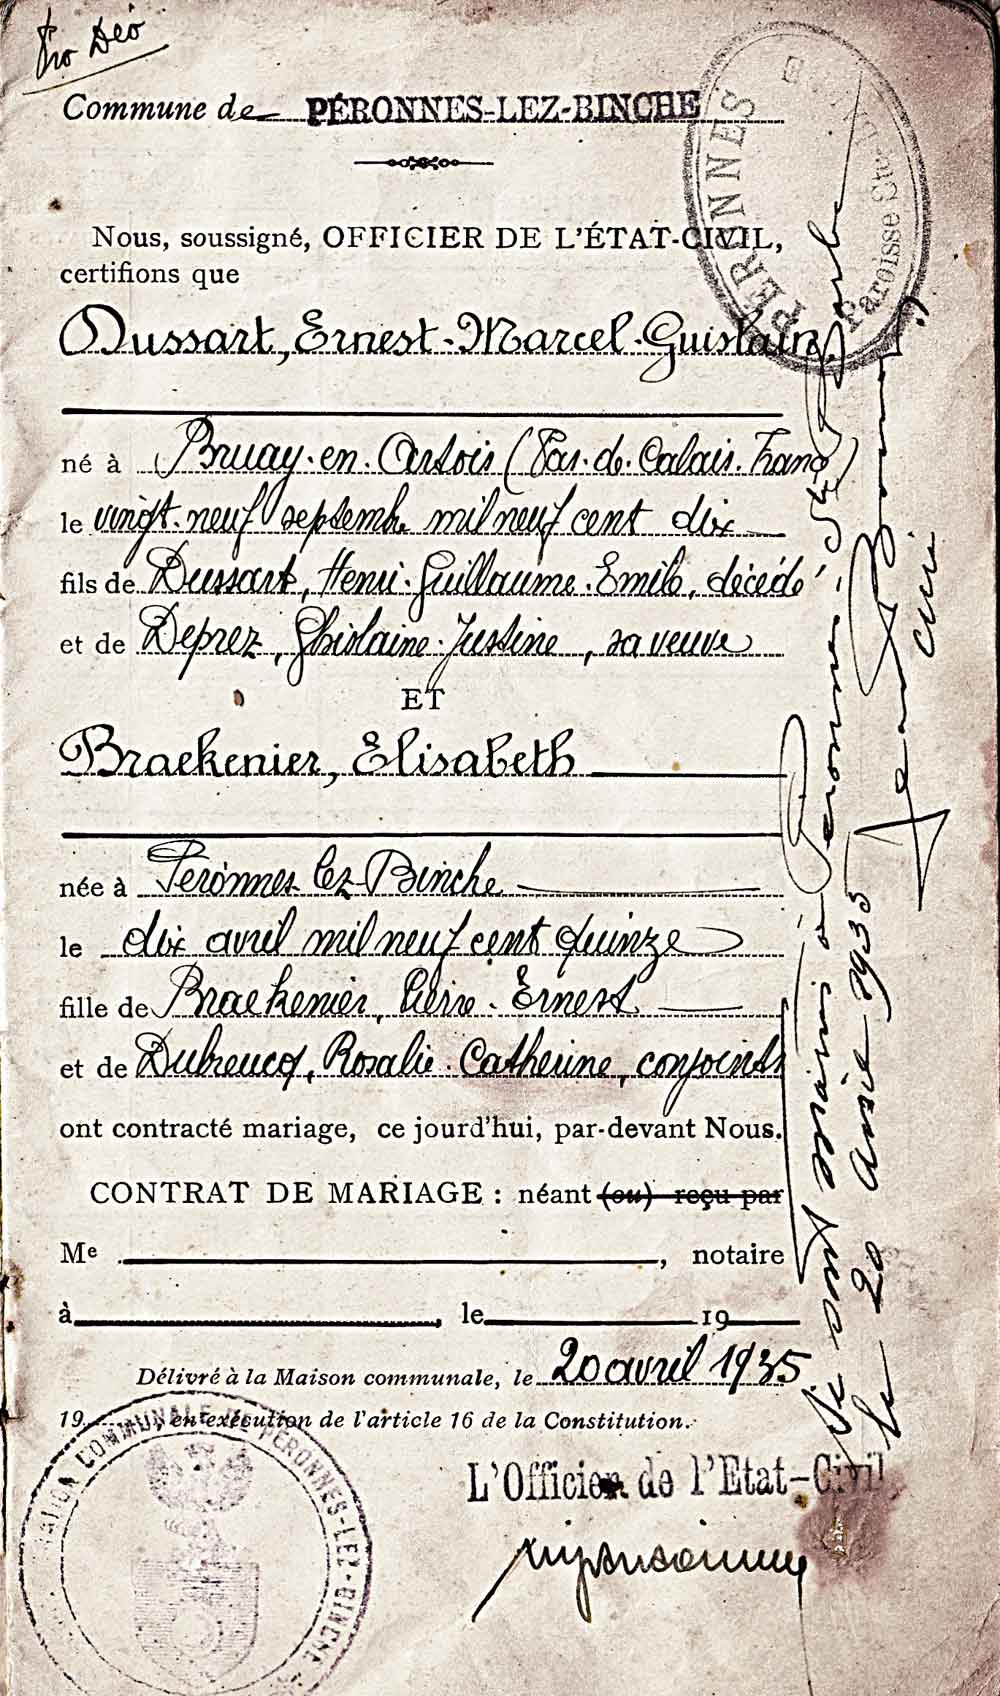 Pro Deo
Commune de PÉRONNES-LEZ-BINCHE
PÉRONNES
Paroisse Ste-
Nous, soussigné, OFFICIER DE L'ÉTAT-CIVIL,
certifions que
Dussart, Ernest-Marcel-Guislain
né à Bruay-en-Artois (Pas-de-Calais-France)
le vingt-neuf septembre mil neuf cent dix
fils de Dussart, Henri-Guillaume-Emile, décédé
et de Deprez, Ghislaine-Justine, sa veuve
ET
Braekenier, Elisabeth
née à Péronnes-lez-Binche
le dix avril mil neuf cent quinze
fille de Braekenier, Pierre-Ernest
et de Dubreucq, Rosalie-Catherine, conjoints
ont contracté mariage, ce jourd'hui, par-devant Nous.
CONTRAT DE MARIAGE : néant (ou) reçu par
Me , notaire
à , le 19
Délivré à la Maison communale, le 20 avril 1935
19 , en exécution de l'article 16 de la Constitution.
L'Officier de l'Etat-Civil
COMMUNALE DE PÉRONNES-LEZ-BINCHE
Se sont mariés à Péronnes-Ste Barbe
le 20 avril 1935
curé